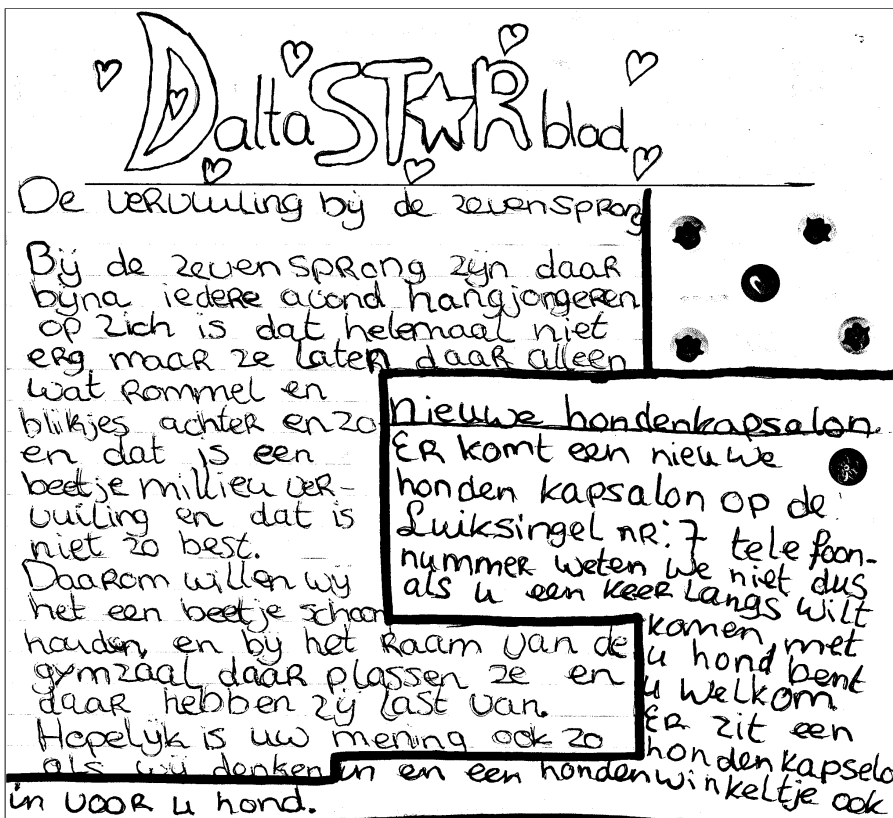 DaltaSTARblad
De vervuiling bij de zevensprong
Bij de zevensprong zijn daar
bijna iedere avond hangjongeren
op zich is dat helemaal niet
erg maar ze laten daar alleen
wat rommel en
blikjes achter en zo
en dat is een
beetje millieu ver-
vuiling en dat is
niet zo best.
Daarom willen wij
het een beetje schoon
houden, en bij het raam van de
gymzaal daar plassen ze en
daar hebben zij last van.
Hopelijk is uw mening ook zo
als wij denken
nieuwe hondenkapsalon
Er komt een nieuwe
honden kapsalon op de
Luiksingel nr: 7 telefoon-
nummer weten we niet dus
als u een keer langs wilt
komen, met
u hond bent
u welkom
Er zit een
hondenkapselo
in en een hondenwinkeltje ook
in voor u hond.